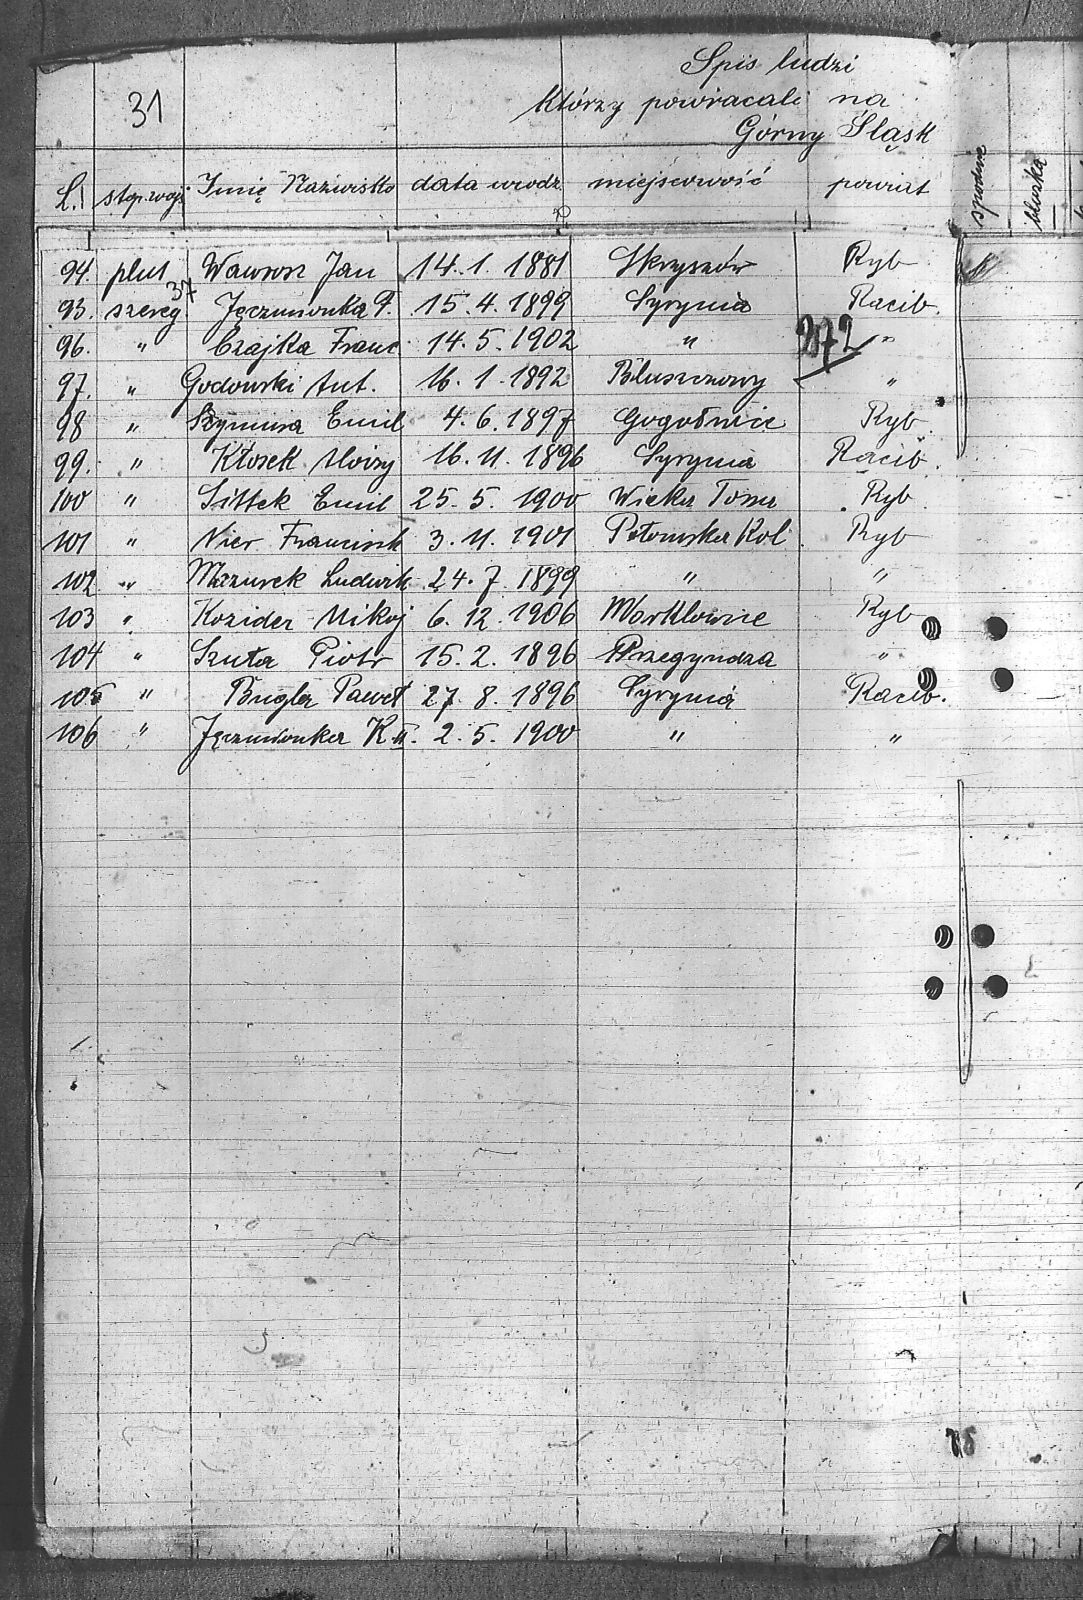 Spis ludzi
31
którzy powracali na
Górny Śląsk
L. stop. wojs. Imię Nazwisko data urodz. miejscowość powiat spodnie bluzka
94. plut Wawrosz Jan 14.1.1881 Skrzyszów Ryb
95. szereg. 37 Jęczmionka F. 15.4.1899 Syrynia Racib.
96. " Czajka Franc. 14.5.1902 " 272 "
97. " Godowski Ant. 16.1.1892 Bluszczowy "
98 " Szymura Emil 4.6.1897 Gogołowice Ryb.
99. " Kłosek Alojzy 16.11.1896 Syrynia Racib.
100 " Sittek Emil 25.5.1900 Ryb.
101 " Nier Franciszk 3.11.1901 Połomska Kol. Ryb
102 " Mazurek Ludwik 24.7.1899 " "
103 " Kozider Mikoj 6.12.1906 Marklowice Ryb
104 " Szuta Piotr 15.2.1896 Przegyndza "
105 " Bugla Paweł 27.8.1896 Syrynia Racib.
106 " Jęczmionka K. II. 2.5.1900 " "